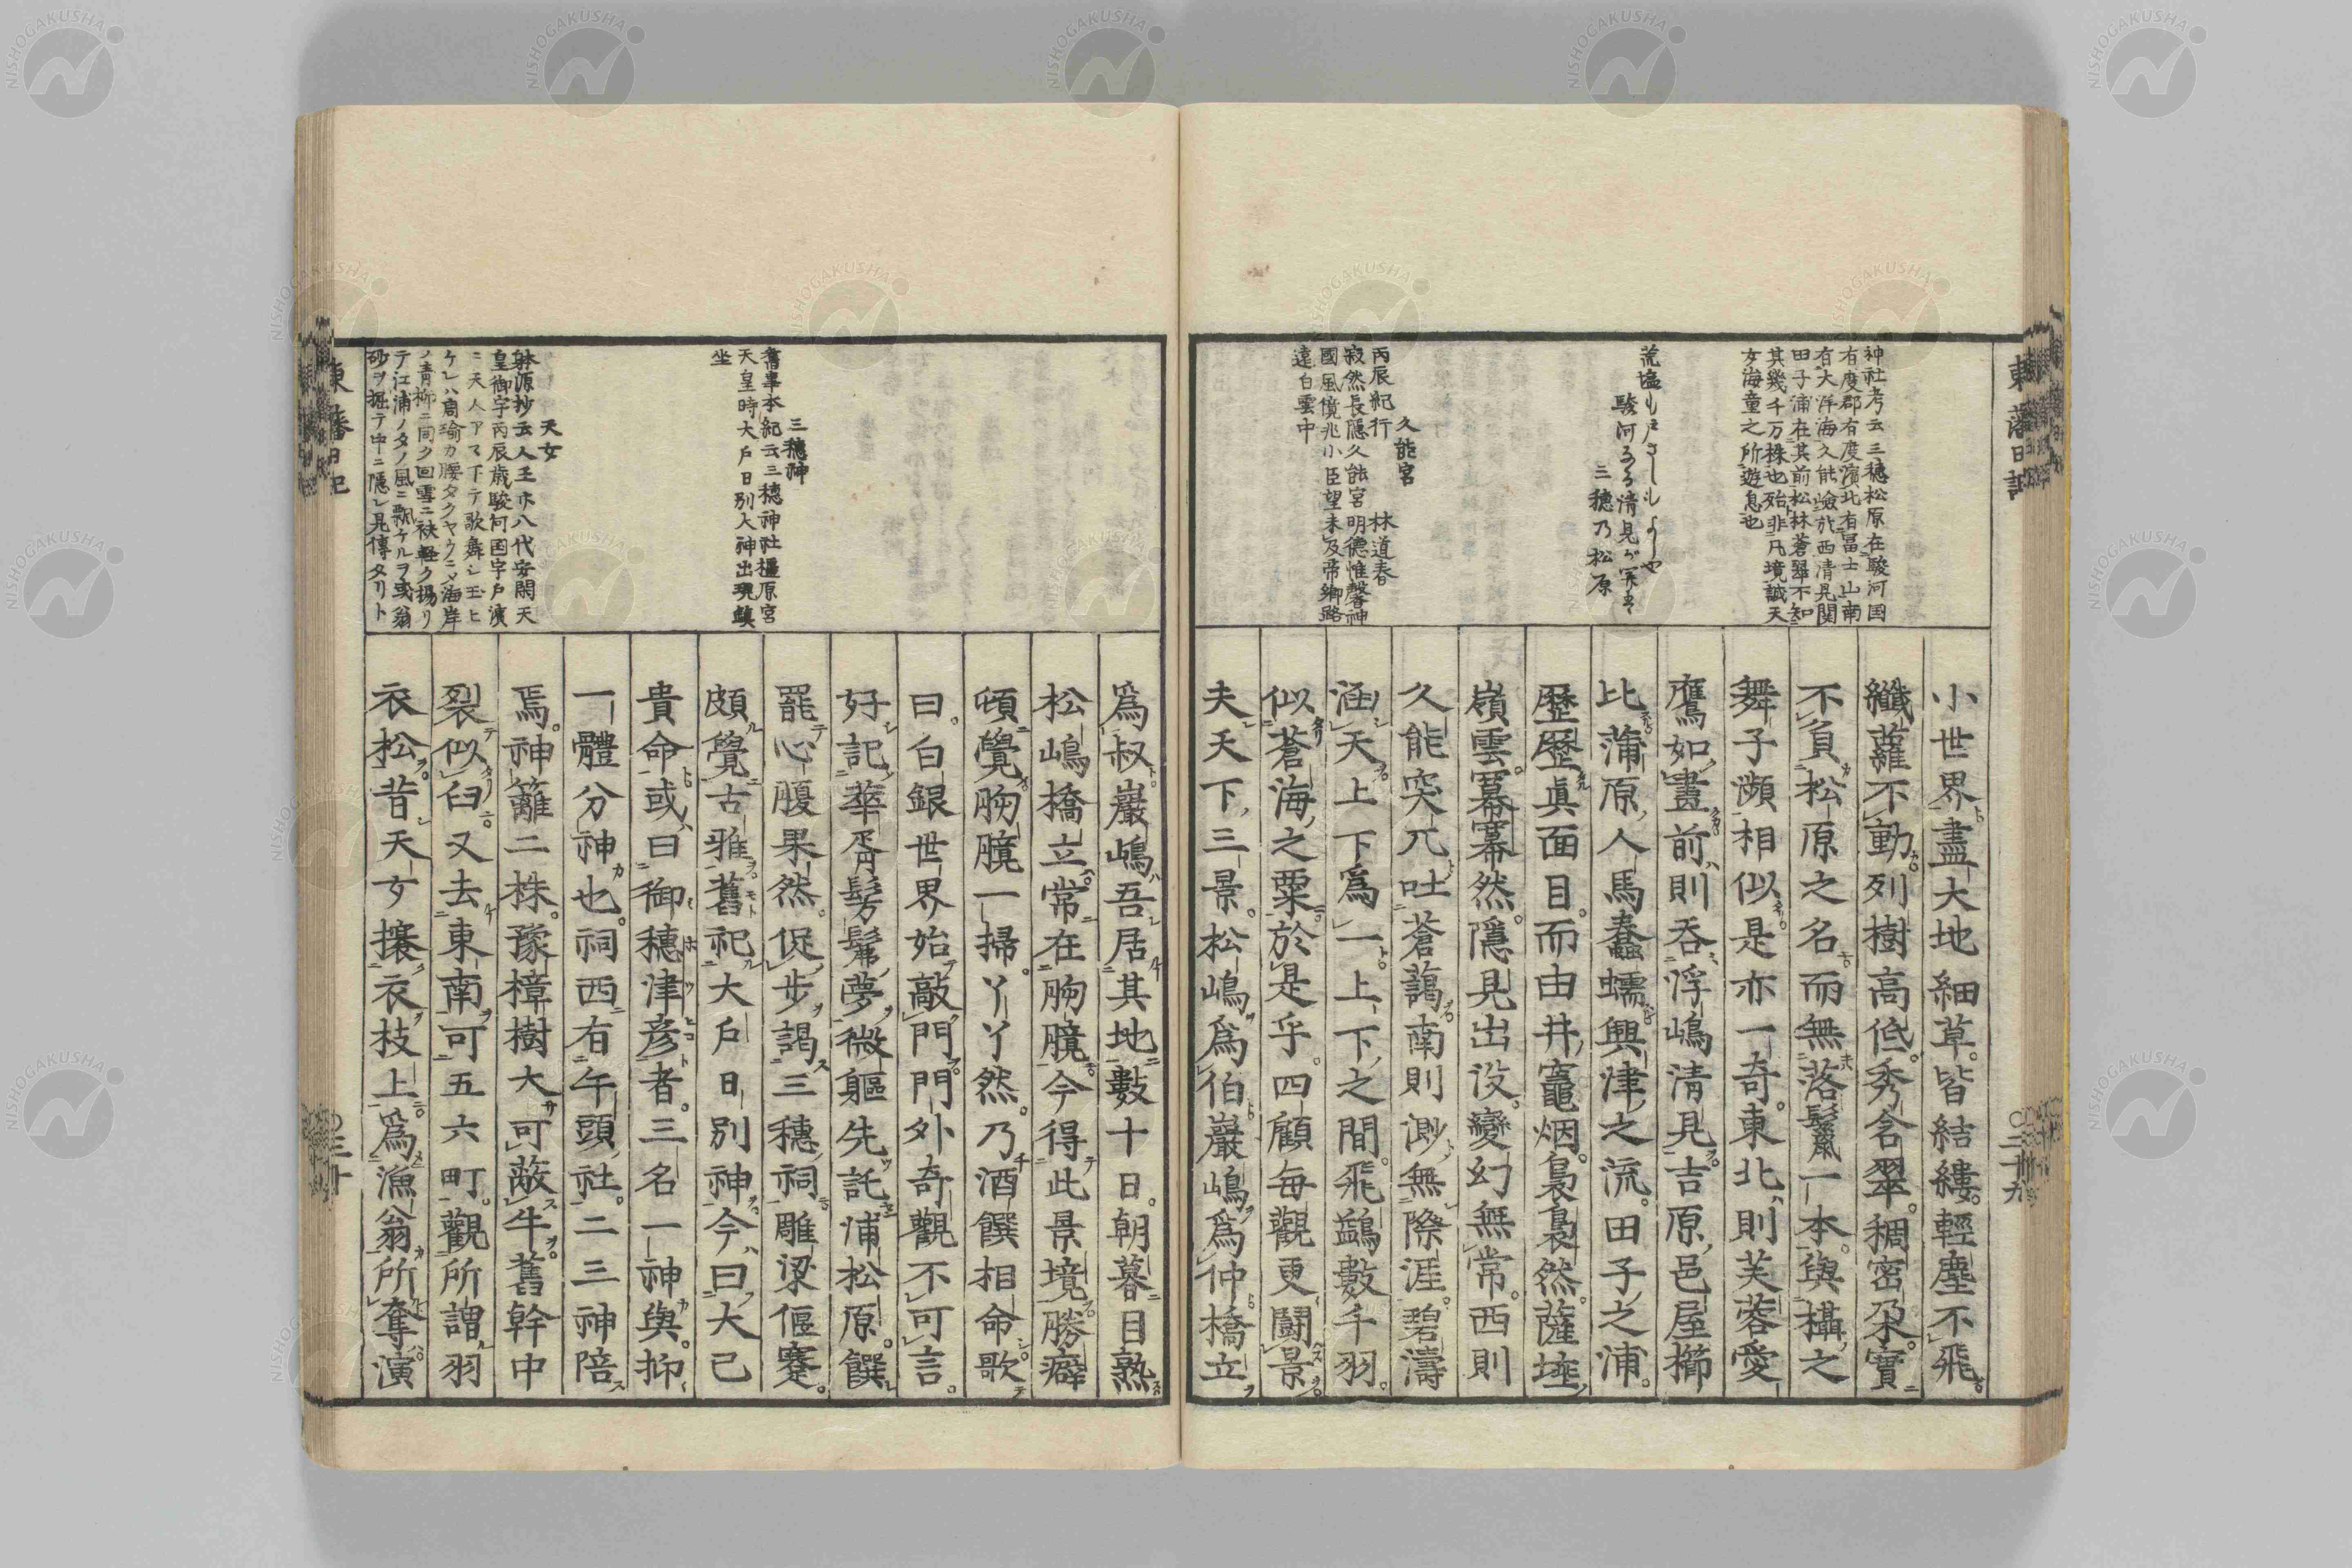 東藩日記
二十九
神社考云三穗松原在駿河国
有度郡有度濱北有冨士山南
有大洋海久能嶮於西清見関
田子浦在其前松林蒼翠不知
其幾千万株也殆非凡境誠天
女海童之所遊息也
駿河なる清見が
三穗乃松原
久能宮 林道春
丙辰紀行
寂然長隠久能宮明德惟馨神
國風億兆小臣望未及帝鄉路
遠白雲中
小世界盡大地細草皆結縷輕塵不飛
纖蘿不動列樹高低秀含翠稠密朶實
不負松原之名而無落鬣一本與橸之
舞子瀕相似是亦一奇東北則芙蓉愛
鷹如畫前則呑浮嶋清見吉原邑屋櫛
比蒲原人馬蠢蠕興津之流田子之浦
歷歷眞面目而由井竈烟裊裊然薩埵
嶺雲冪冪然隱見出没變幻無常西則
久能突兀吐蒼藹南則渺無際涯碧濤
涵天上下爲一上下之間飛鷁數千羽
似蒼海之粟於是乎四顧毎觀更鬪景
夫天下三景松嶋爲伯巖嶋爲仲橋立
三穗神
舊事本紀云三穗神社橿原宮
天皇時大戶日別大神出現鎮
坐
天女
躰源抄云人王廿八代安閑天
皇御宇丙辰歳駿河国宇戶濱
ニ天人アマ下テ歌舞シ玉ヒ
ケレハ周瑜カ腰タヲヤカニメ海岸
ノ青柳ニ同ク回雪ニ袂軽ク揚リ
テ江浦ノタノ風ニ飄ケルヲ或翁
砂ヲ掘テ中ニ隱レ見傳タリト
爲叔巖嶋吾居其地數十日朝暮目熟
松嶋橋立常在胸臆今得此景境勝癖
頓覺胸臆一掃丫丫然乃酒饌相命歌
曰白銀世界始敲門門外奇觀不可言
好記華胥髣髴夢微軀先託浦松原饌
罷心腹果然促步謁三穗祠雕梁偃蹇
頗覺古雅舊祀大戶日別神今曰大己
貴命或曰御穗津彦者三名一神與抑
一體分神也祠西有午頭社二三神陪
焉神籬二株豫樟樹大可蔽牛舊幹中
裂似臼又去東南可五六町觀所謂羽
衣松昔天女攘衣枝上爲漁翁所奪演
東藩日記
三十